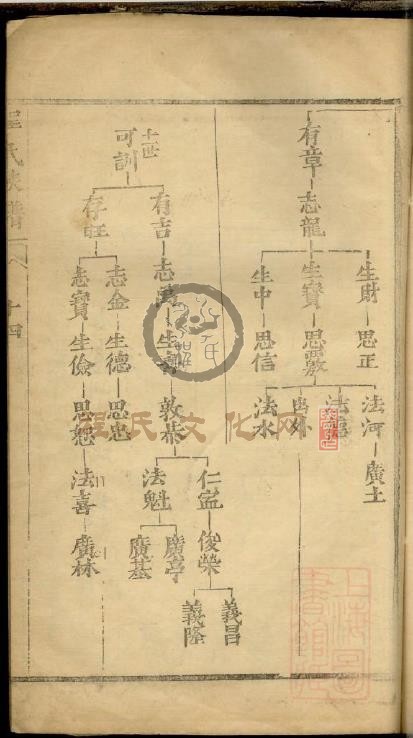 有章 志龍
生財 思正
生寶 思敬
生中 思信
法河 廣土
法
出外
法水
十世
可訓
有吉 志
存旺
生
敦恭
仁
俊榮
義昌
義隆
法魁
廣亭
廣基
志金 生德 思忠
志寶 生儉 思恕 法喜 廣林
程氏族譜
十四
程氏文化网
上海圖書館藏